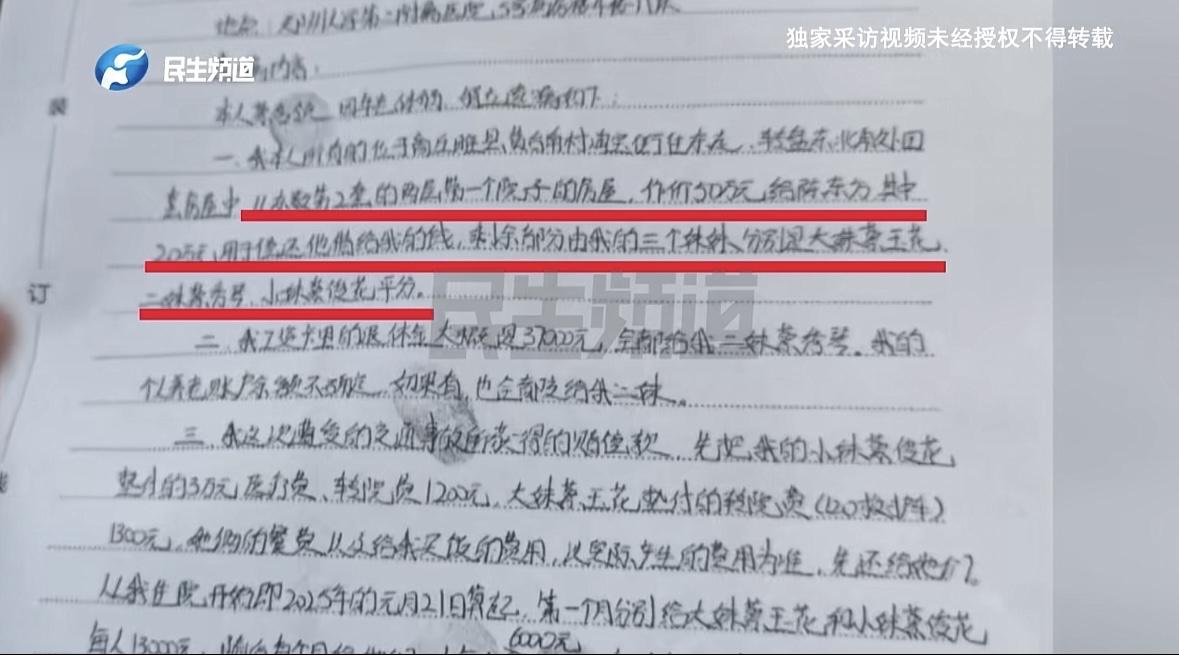 独家采访视频未经授权不得转载
民生频道
内容：
装
本人蔡 因年老体弱，
一、我本人所有的位于商丘睢县 村 转盘东北角处四
套房屋中从东数第2套的两层带一个院子的房屋，作价50万元，给陈东方，其中
20万元用于偿还他借给我的钱，剩余部分由我的三个妹妹，分别是大妹蔡玉花、
订
二妹蔡秀琴、小妹蔡俊花平分。
民生频道
二、我工资卡里的退休金大概是37000元，全部给我二妹蔡秀琴。我的
个人养老账户余额不确定，如果有，也全部给我二妹。
三、我这次遭受的交通事故所获得的赔偿款，先把我的小妹蔡俊花
垫付的3万元医疗费、转院费1200元，大妹蔡玉花垫付的转院费（120救护车）
1300元，她们的餐费以及给我买饭的费用，以实际产生的费用为准，先还给她们。
从我住院开始即2025年的元月21日算起，第一个月分别给大妹蔡玉花和小妹蔡俊花
每人13000元，
6000元